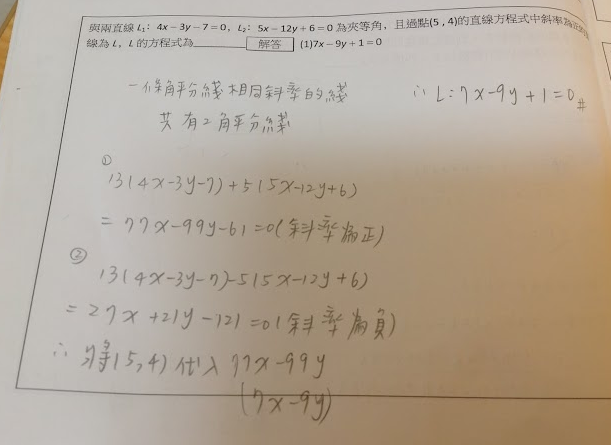 與兩直線 L₁: 4x−3y−7=0, L₂: 5x−12y+6=0 為夾等角，且過點(5,4)的直線方程式中斜率為正的
線為 L，L 的方程式為________ 解答 (1)7x−9y+1=0
一條角平分綫相同斜率的綫
共有2角平分綫
∴ L:7x-9y+1=0#
①
13(4x-3y-7)+5(5x-12y+6)
=77x-99y-61=0(斜率為正)
②
13(4x-3y-7)-5(5x-12y+6)
=27x+21y-121=0(斜率為負)
∴將(5,4)代入77x-99y
(7x-9y)